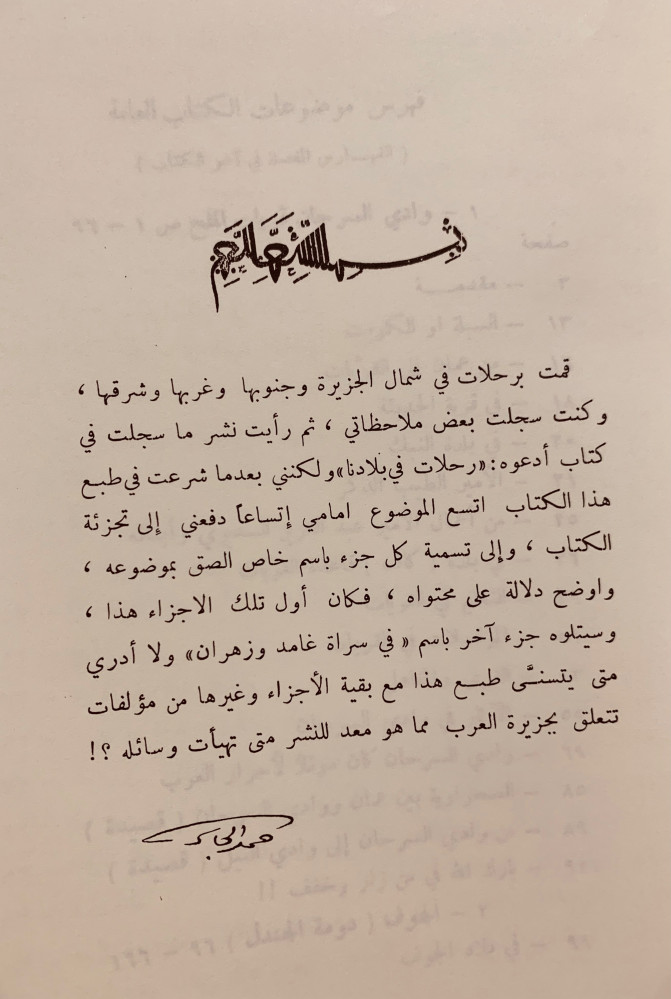 بسم الله الرحمن الرحيم
قمت برحلات في شمال الجزيرة وجنوبها وغربها وشرقها ،
وكنت سجلت بعض ملاحظاتي ، ثم رأيت نشر ما سجلت في
كتاب أدعوه : «رحلات في بلادنا» ولكنني بعدما شرعت في طبع
هذا الكتاب اتسع الموضوع امامي إتساعاً دفعني إلى تجزئة
الكتاب ، وإلى تسمية كل جزء باسم خاص الصق بموضوعه ،
واوضح دلالة على محتواه ، فكان أول تلك الاجزاء هذا ،
وسيتلوه جزء آخر باسم « في سراة غامد وزهران» ولا أدري
متى يتسنَّى طبع هذا مع بقية الأجزاء وغيرها من مؤلفات
تتعلق بجزيرة العرب مما هو معد للنشر متى تهيأت وسائله ؟!
حمد الجاسر